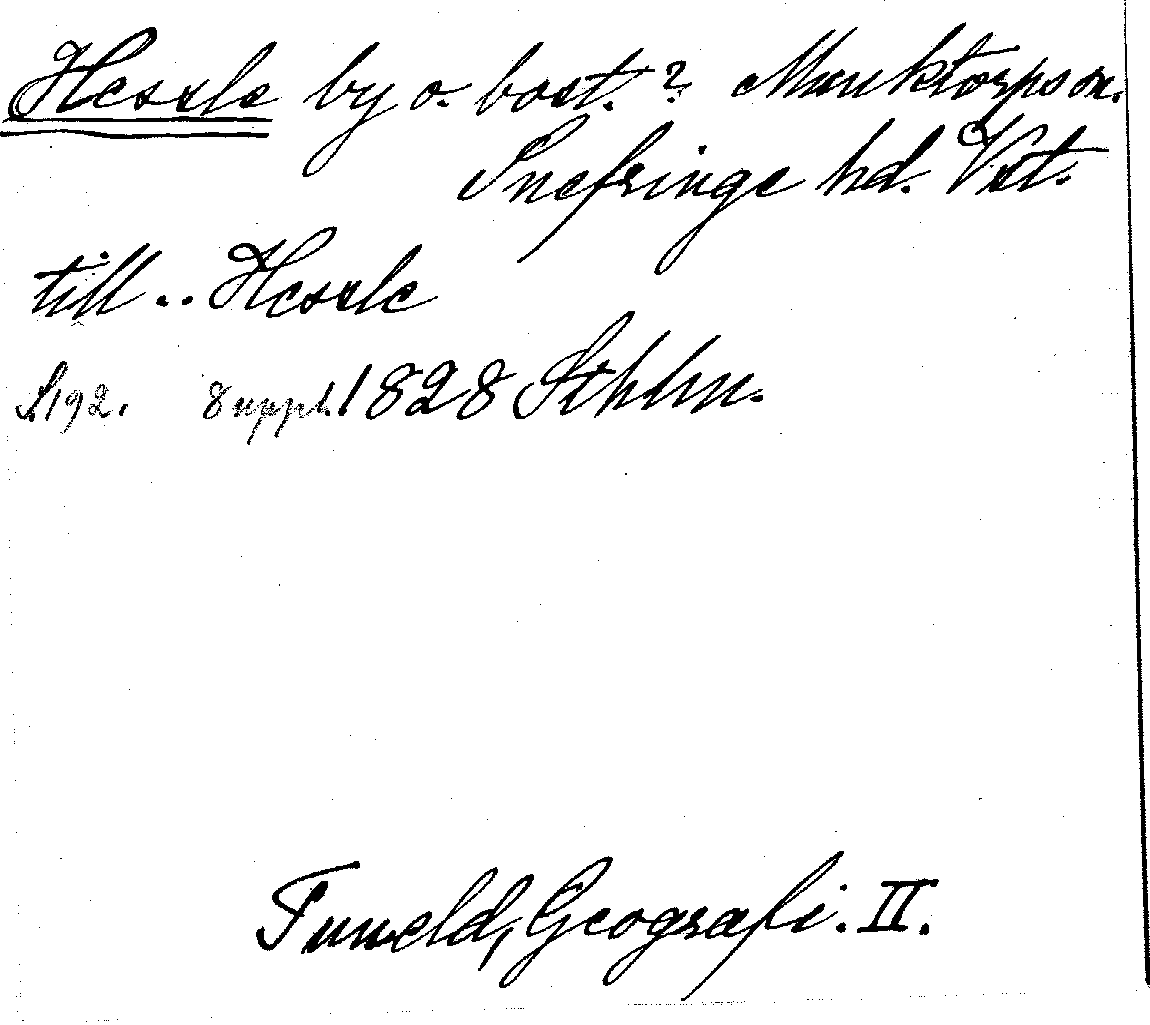 Hessle by o. bost.? Munktorps sn.
Snefringe hd. Vstm.
till .. Hessle
S.192. 8 uppl. 1828 Sthlm.
Tuneld, Geografi. II.